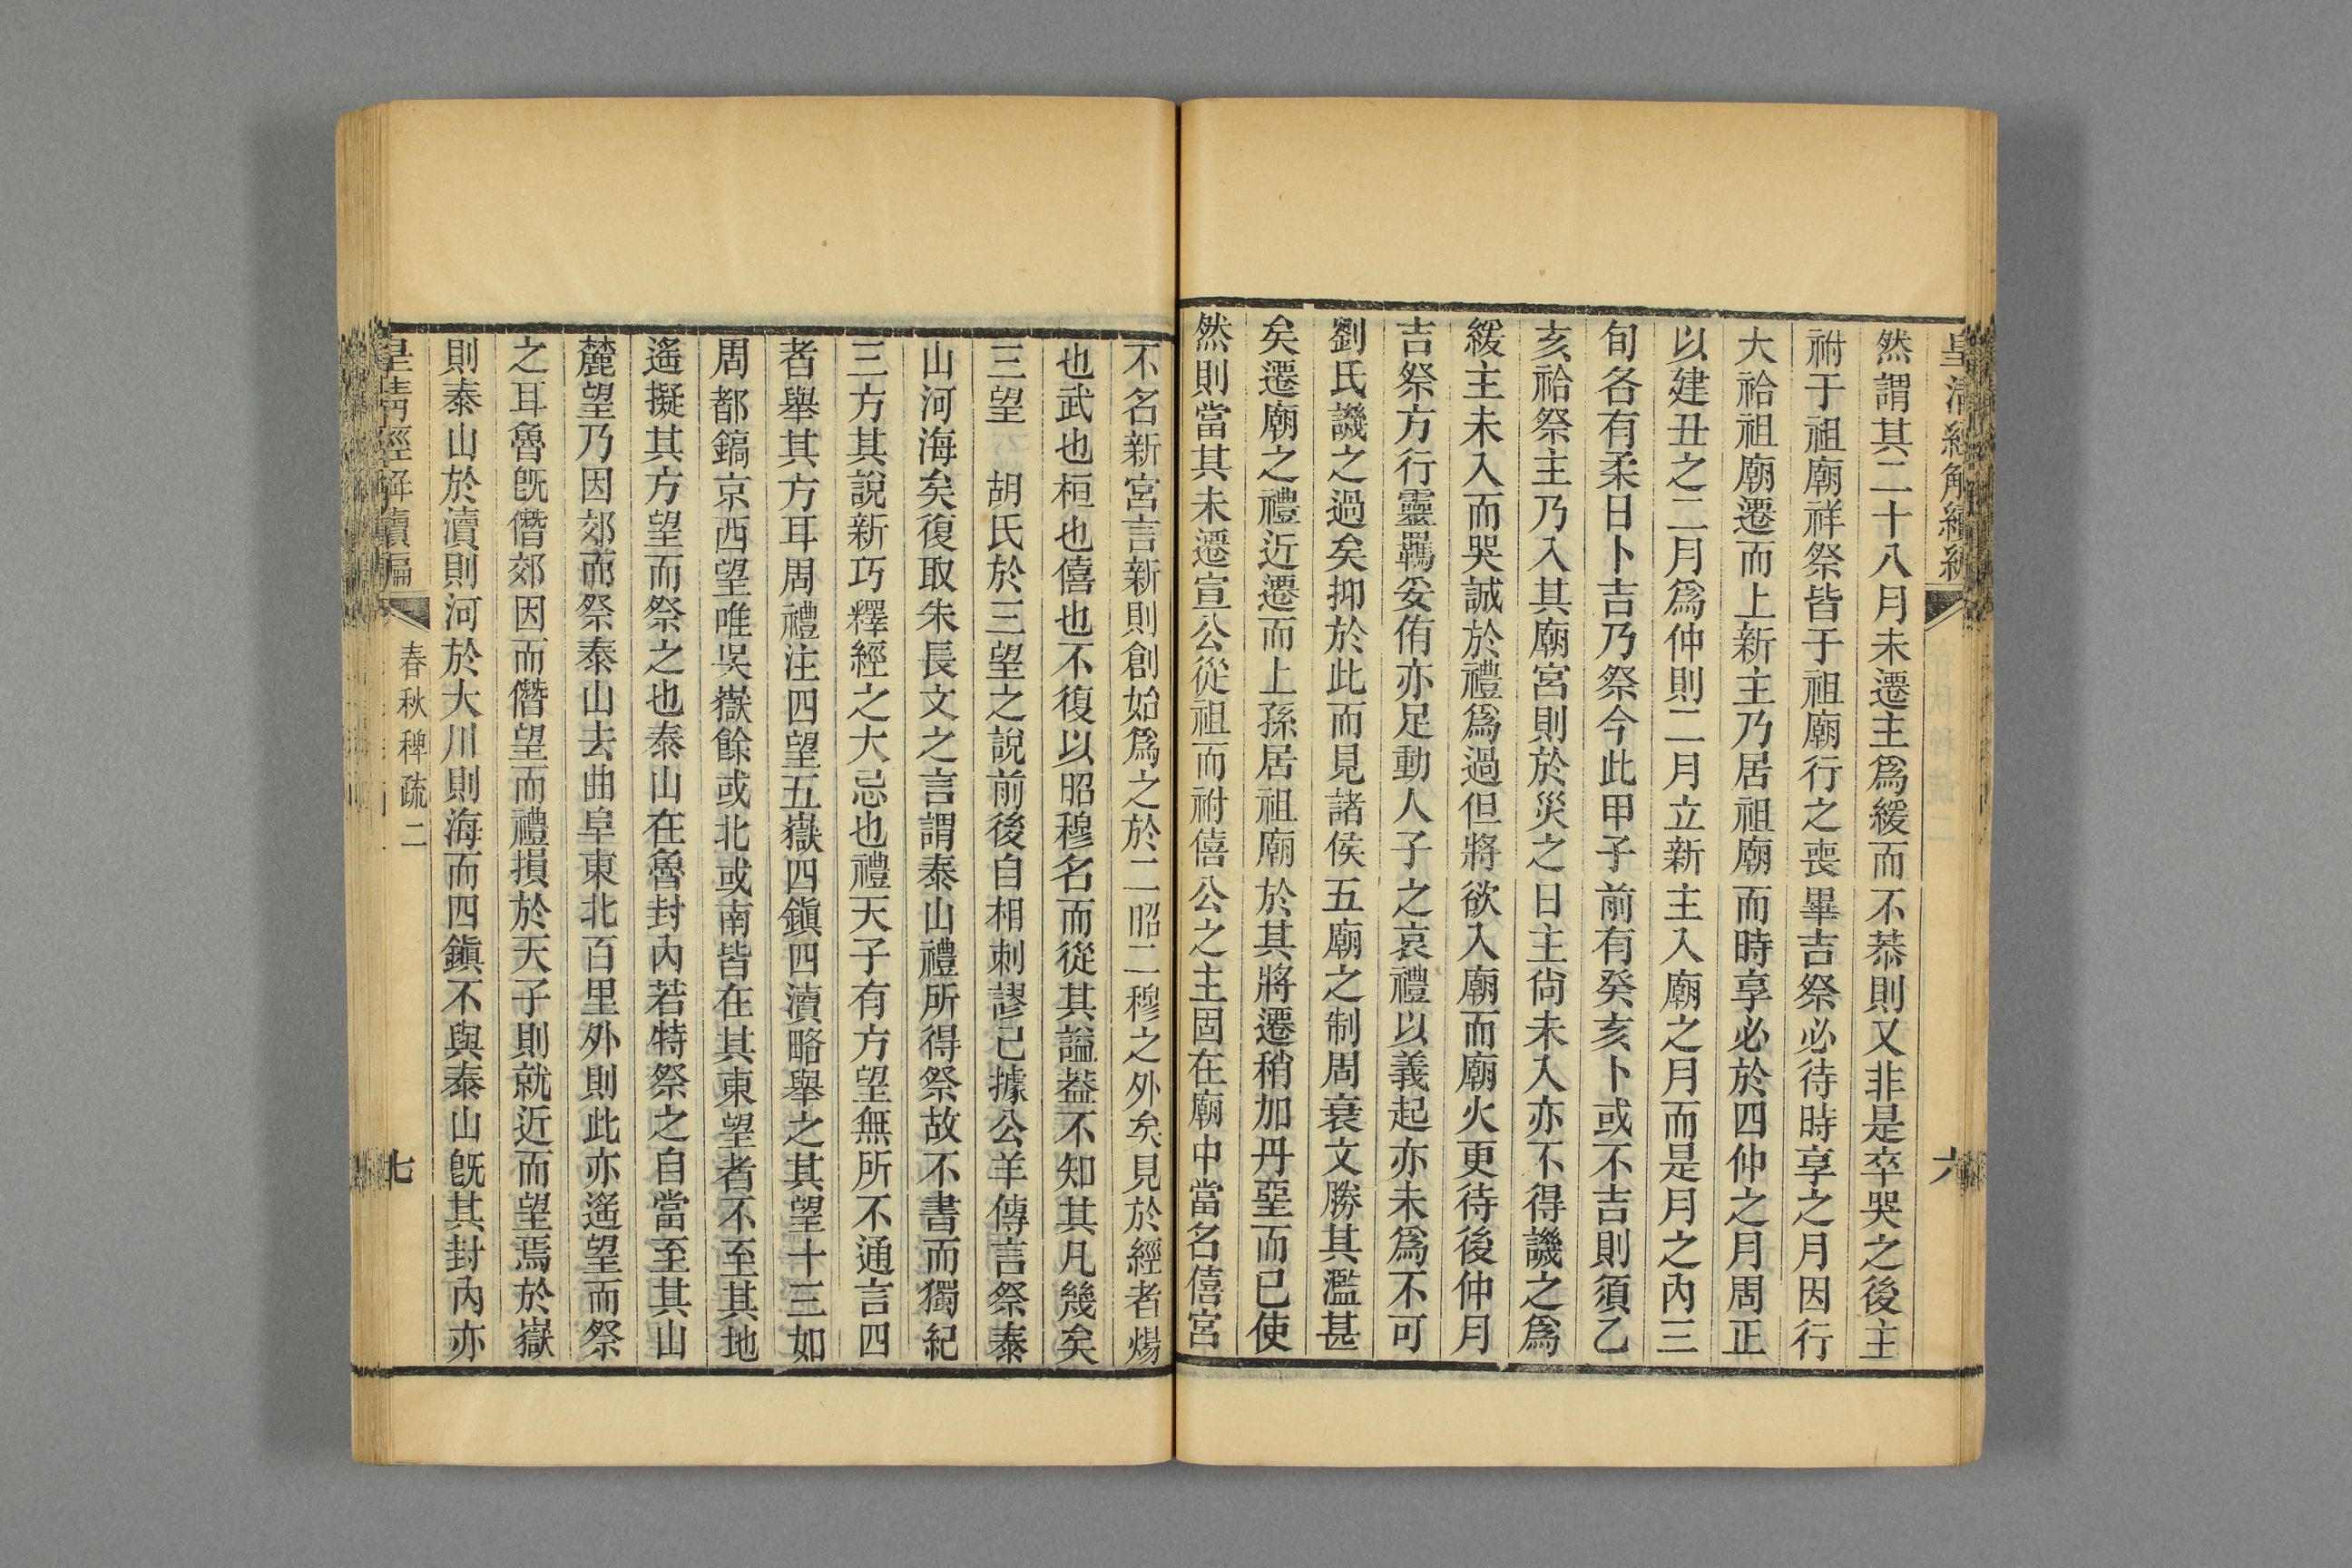 皇清經解續編
六
然謂其二十八月未遷主爲緩而不恭則又非是卒哭之後主
祔于祖廟祥祭皆于祖廟行之喪畢吉祭必待時享之月因行
大祫祖廟遷而上新主乃居祖廟而時享必於四仲之月周正
以建丑之二月爲仲則二月立新主入廟之月而是月之內三
旬各有柔日卜吉乃祭今此甲子前有癸亥卜或不吉則須乙
亥祫祭主乃入其廟宮則於災之日主尙未入亦不得譏之爲
緩主未入而哭誠於禮爲過但將欲入廟而廟火更待後仲月
吉祭方行靈羈妥侑亦足動人子之哀禮以義起亦未爲不可
劉氏譏之過矣抑於此而見諸侯五廟之制周衰文勝其濫甚
矣遷廟之禮近遷而上孫居祖廟於其將遷稍加丹堊而已使
然則當其未遷宣公從祖而祔僖公之主固在廟中當名僖宮
不名新宮言新則創始爲之於二昭二穆之外矣見於經者煬
也武也桓也僖也不復以昭穆名而從其謚葢不知其凡幾矣
三望　胡氏於三望之說前後自相刺謬已據公羊傳言祭泰
山河海矣復取朱長文之言謂泰山禮所得祭故不書而獨紀
三方其說新巧釋經之大忌也禮天子有方望無所不通言四
者舉其方耳周禮注四望五嶽四鎭四瀆略舉之其望十三如
周都鎬京西望唯吳嶽餘或北或南皆在其東望者不至其地
遙擬其方望而祭之也泰山在魯封內若特祭之自當至其山
麓望乃因郊而祭泰山去曲阜東北百里外則此亦遙望而祭
之耳魯旣僭郊因而僭望而禮損於天子則就近而望焉於嶽
則泰山於瀆則河於大川則海而四鎭不與泰山旣其封內亦
皇清經解續編
春秋稗疏二
七